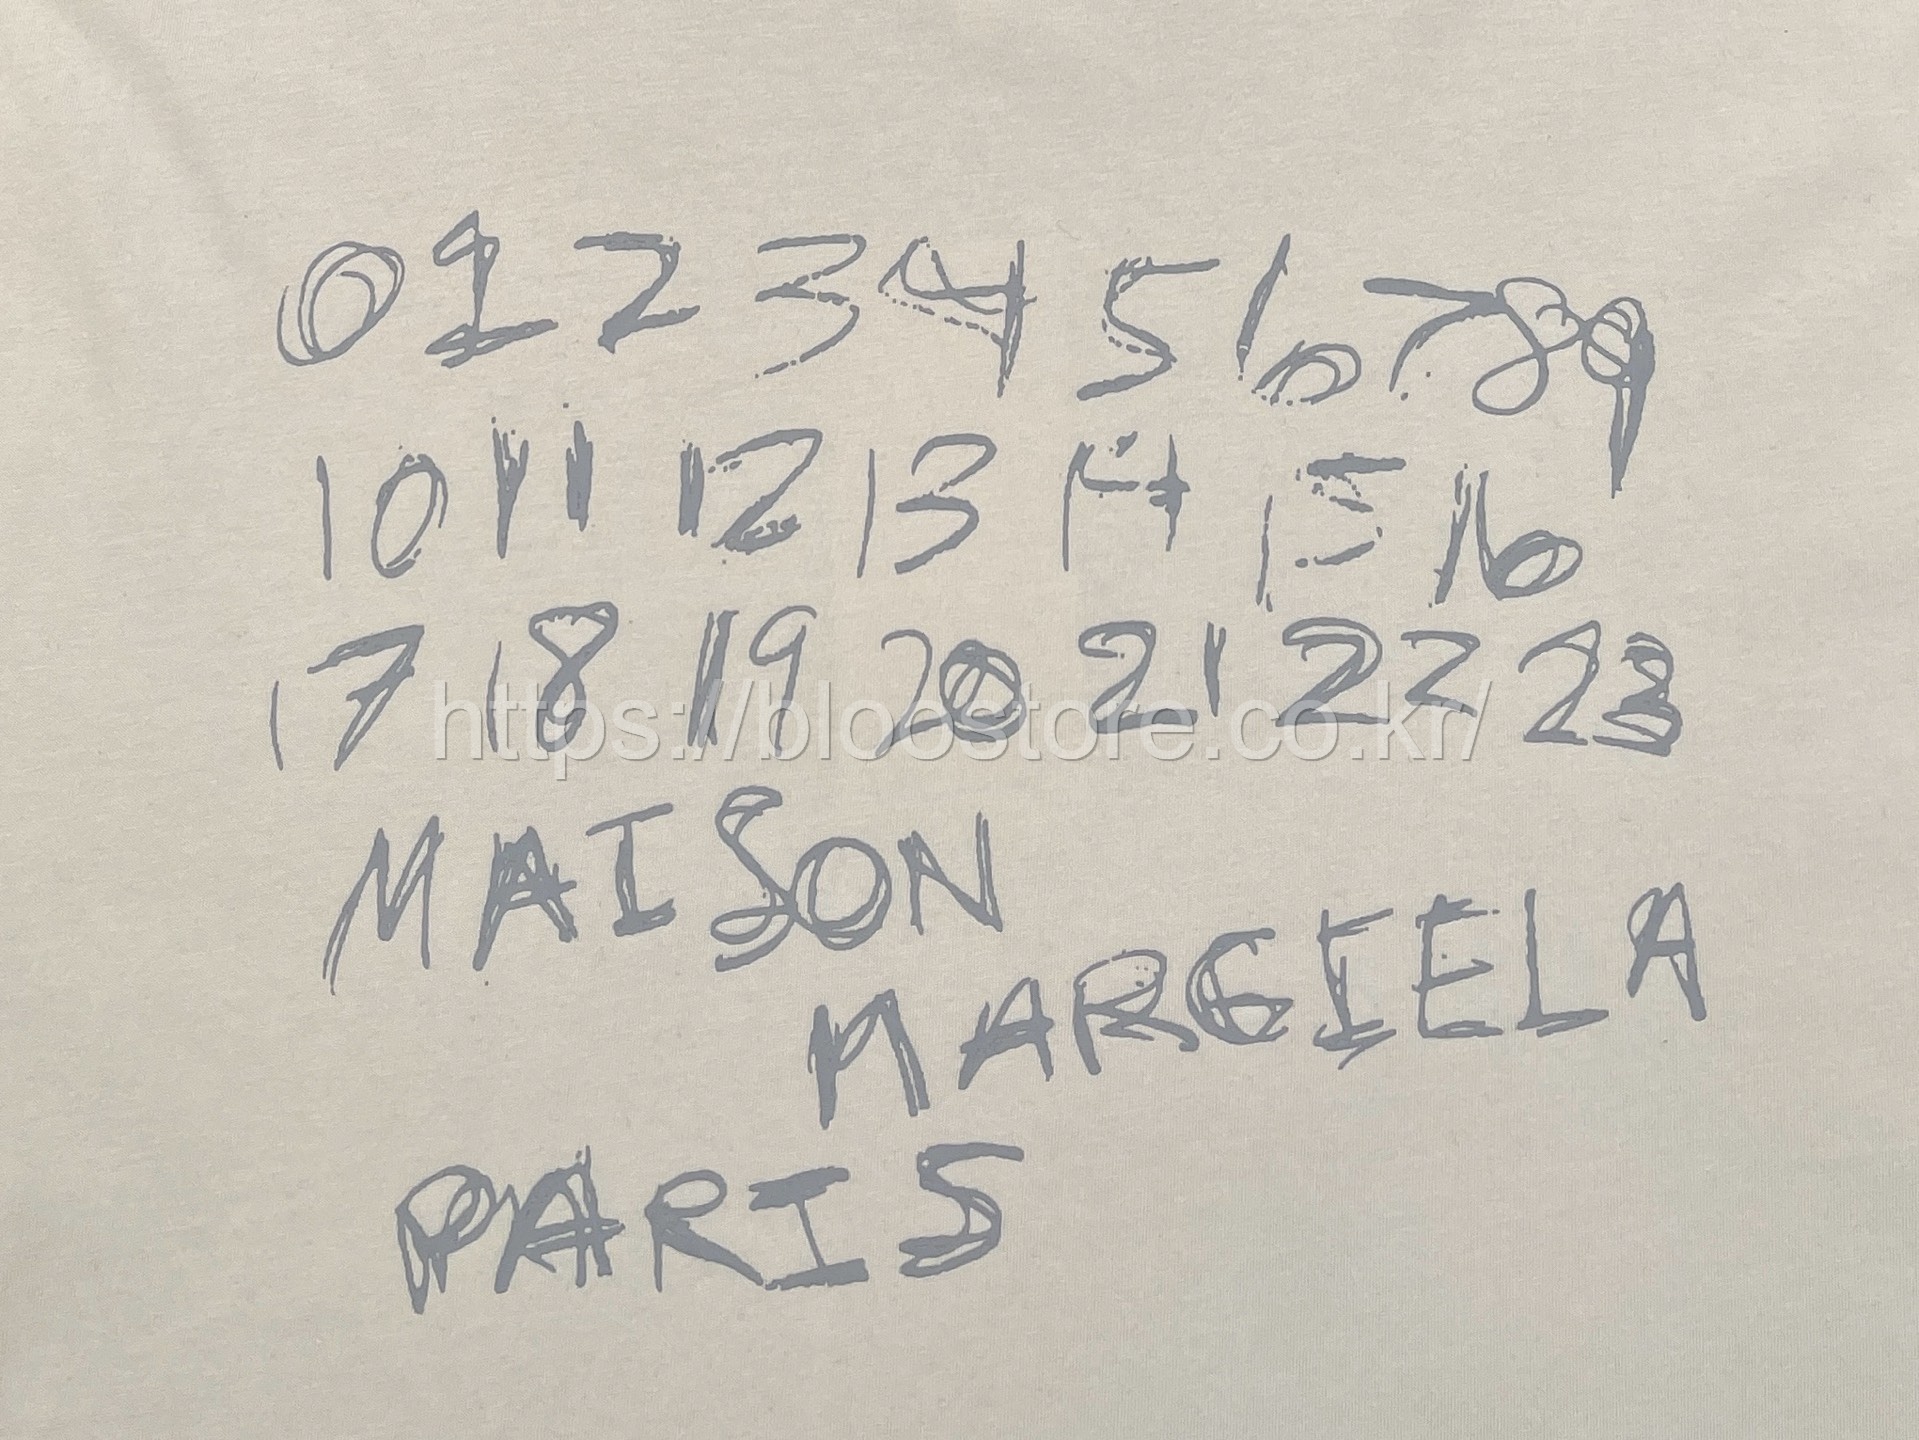 0 1 2 3 4 5 6 7 8 9
10 11 12 13 14 15 16
17 18 19 20 21 22 23
https://bloostore.co.kr/
MAISON
MARGIELA
PARIS